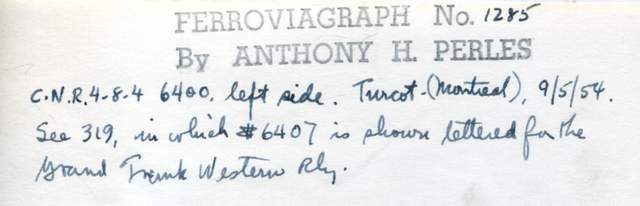 FERROVIAGRAPH No. 1285
By ANTHONY H. PERLES
C.N.R. 4-8-4 6400, left side. Turcot-(Montreal), 9/5/54.
See 319, in which #6407 is shown lettered for the
Grand Trunk Western Rly.